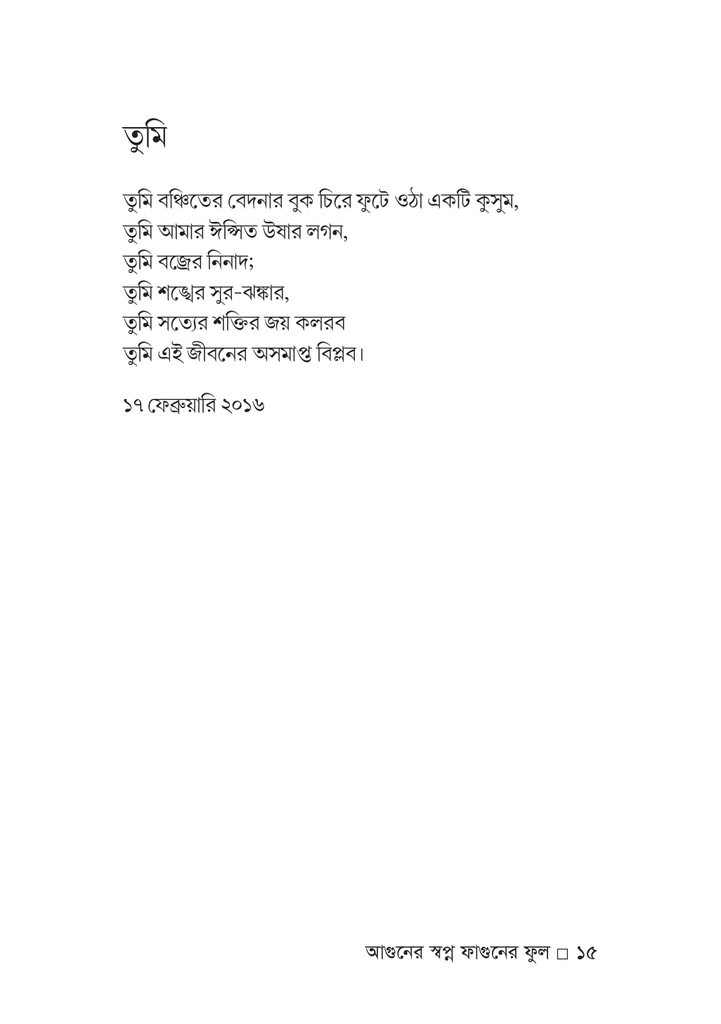 তুমি
তুমি বঞ্চিতের বেদনার বুক চিরে ফুটে ওঠা একটি কুসুম,
তুমি আমার ঈপ্সিত উষার লগন,
তুমি বজ্রের নিনাদ;
তুমি শঙ্খের সুর-ঝঙ্কার,
তুমি সত্যের শক্তির জয় কলরব
তুমি এই জীবনের অসমাপ্ত বিপ্লব।
১৭ ফেব্রুয়ারি ২০১৬
আগুনের স্বপ্ন ফাগুনের ফুল □ ১৫